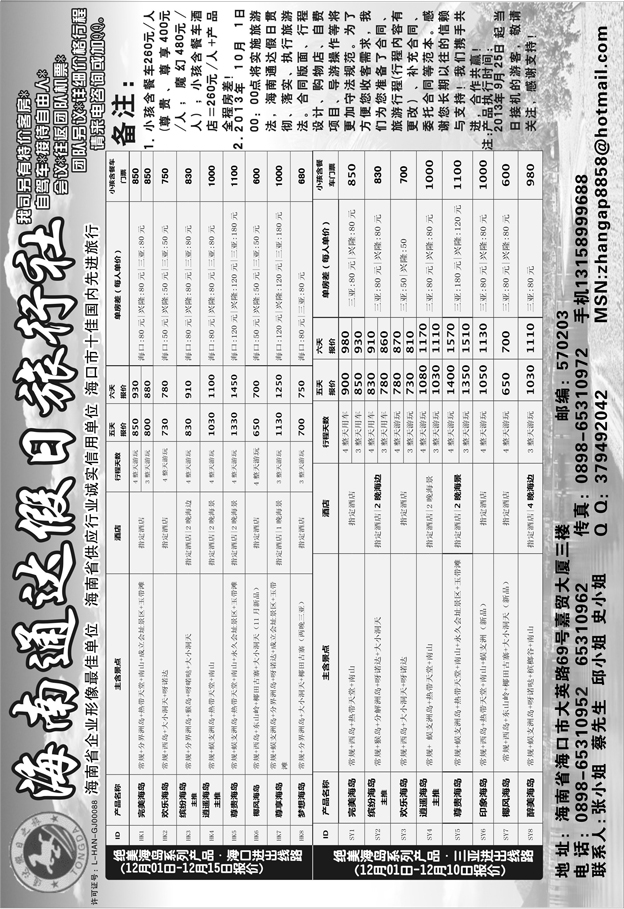 海南通达假日旅行社
我司另有特价客房*
自驾车*接待自由人*
会议*往返团队机票*
团队另议*详细价格行程
请来电咨询或加QQ。
许可证号：L-HAN-GJ00088
TONGYOU
海南省企业形像最佳单位 海南省供应行业诚实信用单位 海口市十佳国内先进旅行
绝美海岛系列产品·海口进出线路
(12月01日-12月15日报价)
ID 产品名称 主含景点 酒店 行程天数 五天报价 六天报价 单房差（每人单价） 小孩含餐车门票
HK1 完美海岛 常规+分界洲岛+热带天堂+南山+成立会址景区+玉带滩 指定酒店 4整天游玩 850 930 海口:80元|兴隆:80元|三亚:80元 850
3整天游玩 800 880 850
HK2 欢乐海岛 常规+西岛+大小洞天+呀诺达 指定酒店 4整天游玩 730 780 海口:50元|兴隆:50元|三亚:50元 750
HK3 缤纷海岛 主推 常规+分界洲岛+猴岛+呀诺哒+大小洞天 指定酒店|2晚海边 4整天游玩 830 910 海口:80元|兴隆:80元|三亚:80元 830
HK4 逍遥海岛 主推 常规+蜈支洲岛+热带天堂+南山 指定酒店|2晚海景 4整天游玩 1030 1100 海口:80元|兴隆:80元|三亚:80元 1000
HK5 尊贵海岛 常规+蜈支洲岛+热带天堂+南山+永久会址景区+玉带滩 指定酒店|2晚海景 4整天游玩 1330 1450 海口:120元|兴隆:120元|三亚:180元 1100
HK6 椰风海岛 常规+西岛+东山岭+椰田古寨+大小洞天(11月新品) 指定酒店 4整天游玩 650 700 海口:50元|兴隆:50元|三亚:50元 600
HK7 尊享海岛 常规+蜈支洲岛+分界洲岛+呀诺达+成立会址景区+玉带滩 指定酒店|1晚海景 4整天游玩 1130 1250 海口:120元|兴隆:120元|三亚:180元 1000
HK8 梦想海岛 常规+分界洲岛+大小洞天+椰田古寨（两晚三亚） 指定酒店 3整天游玩 700 750 海口:80元|三亚:80元 680
绝美海岛系列产品·三亚进出线路
(12月01日-12月10日报价)
ID 产品名称 主含景点 酒店 行程天数 五天报价 六天报价 单房差（每人单价） 小孩含餐车门票
SY1 完美海岛 常规+西岛+热带天堂+南山 指定酒店 4整天用车 900 980 三亚:80元|兴隆:80元 850
3整天用车 850 930
SY2 缤纷海岛 主推 常规+猴岛+分界洲岛+呀诺达+大小洞天 指定酒店|2晚海边 4整天用车 830 910 三亚:80元|兴隆:80元 830
3整天用车 780 860
SY3 欢乐海岛 常规+西岛+大小洞天+呀诺达 指定酒店 4整天游玩 780 870 三亚:50元|兴隆:50 700
3整天游玩 730 810
SY4 逍遥海岛 主推 常规+蜈支洲岛+热带天堂+南山 指定酒店|2晚海景 4整天游玩 1080 1170 三亚:80元|兴隆:80元 1000
3整天游玩 1030 1110
SY5 尊贵海岛 常规+蜈支洲岛+热带天堂+南山+永久会址景区+玉带滩 指定酒店|2晚海景 4整天游玩 1400 1570 三亚:180元|兴隆:120元 1100
3整天游玩 1350 1510
SY6 印象海岛 常规+西岛+热带天堂+南山+蜈支洲（新品） 指定酒店 4整天游玩 1050 1130 三亚:80元|兴隆:80元 1000
SY7 椰风海岛 常规+西岛+东山岭+椰田古寨+大小洞天（新品） 指定酒店 4整天游玩 650 700 三亚:80元|兴隆:80元 600
SY8 醉美海岛 常规+蜈支洲岛+呀诺哒+槟榔谷+南山 指定酒店|4晚海边 3整天游玩 1030 1110 三亚:80元 980
备注：
1.小孩含餐车260元/人
（尊贵、尊享400元
/人；魔幻480元/
人）；小孩含餐车酒
店＝260元/人＋产品
全程房差！
2.2013年10月1日
00：00点将实施旅游
法，海南通达假日贯
彻、落实、执行旅游
法。合同版面、行程
设计、购物店、自费
项目、导游操作等将
更加守法规范。为了
方便您收客需求，我
们为您准备了合同、
旅游行程(行程内容有
更改)、补充合同、
委托合同等范本。感
谢您长期以往的信赖
与支持！我们携手共
进，合作共赢！
注:产品执行时间：
2013年9月25日起当
日接机的游客，敬请
关注，感谢支持！
地址：海南省海口市大英路69号嘉贸大厦三楼 邮编：570203
电话：0898-65310952 65310962 传真：0898-65310972 手机13158999688
联系人:张小姐 蔡先生 邱小姐 史小姐 Q Q：379492042 MSN:zhangap8858@hotmail.com